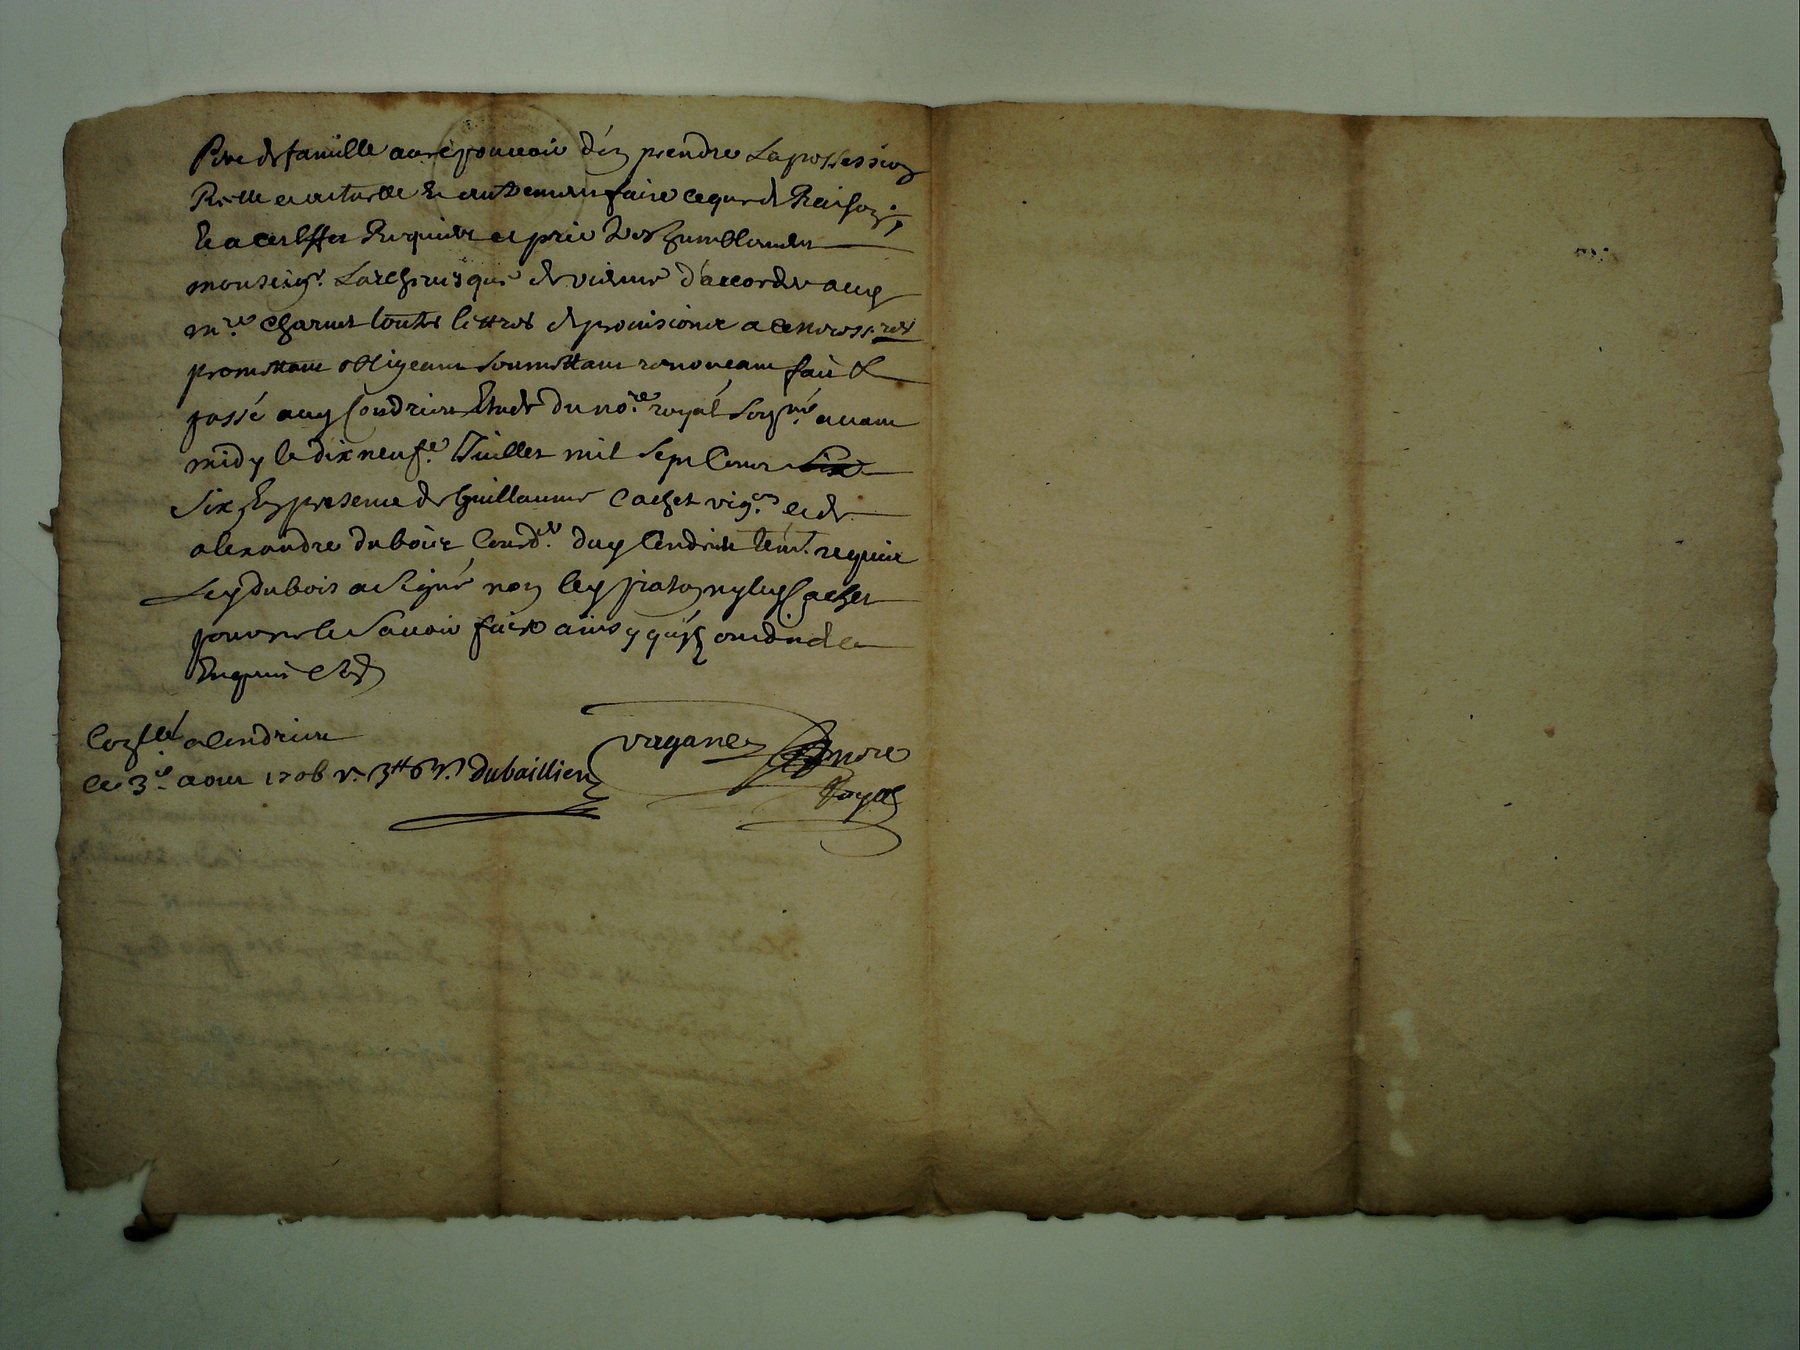 Pere de famille avec pouvoir d'én prendre La possession
Réelle et actuelle Et autrement faire ce que de Raison;
Et a cest effet Requiert et prie tres humblement
monseigr. L'archevesque de vienne d'accorder aud
mre. Charvet toutes lettres de provisions a ce necessres
promettant obligeant soumettant renonceant fait &
passé aud Condrieu Etude du nore. royal soigné. avant
midy le dixneufe. Juillet mil sept Cent
six, En presence de Guillaume Cachet vigon. et de
alexandre dubois Cord. dud Condrieu tem. requis
Led dubois a signé non led piaton ny led Cachet
pour ne le savoir faire ainsy qu'ils ont dit de ce
Enquis &
Conllé a Condrieu
le 3e. aout 1706 r. 3tt 6s. dubaillien
verganet nore
Royal